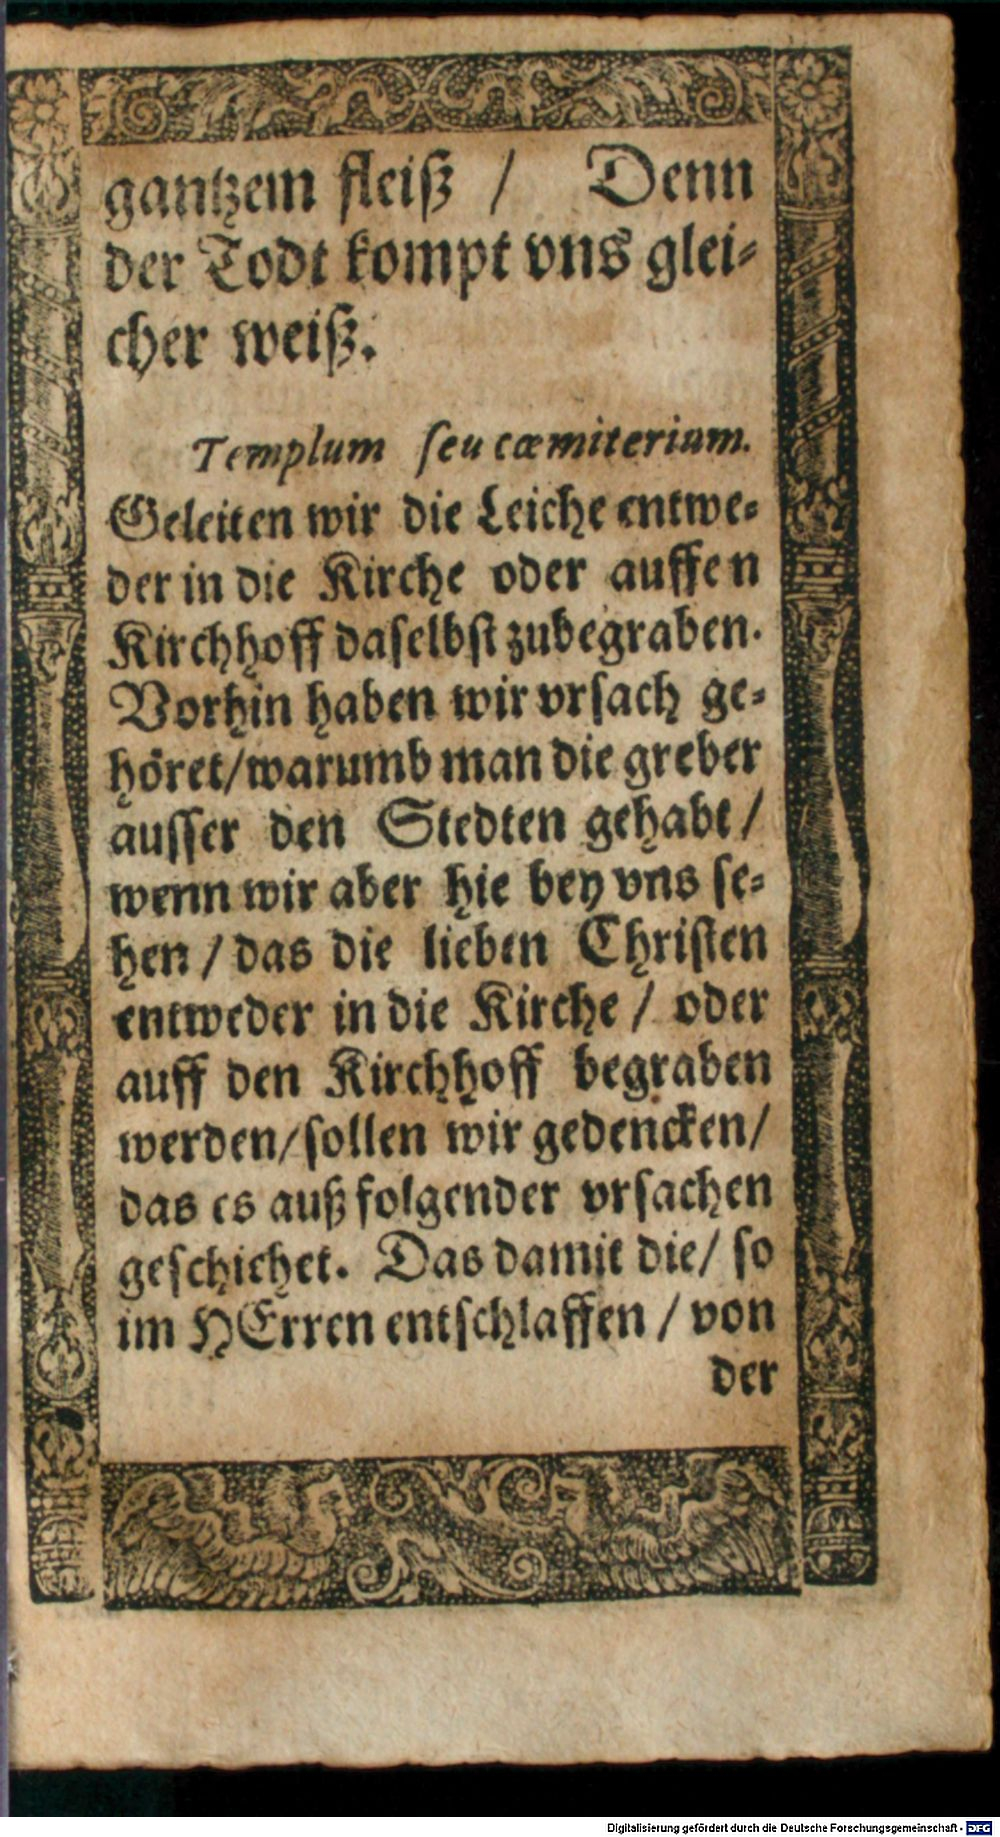 gantzem fleiß / Denn
der Todt kompt vns glei-
cher weiß.
Templum seu cœmiterium.
Geleiten wir die Leiche entwe-
der in die Kirche oder auffen
Kirchhoff daselbst zubegraben.
Vorhin haben wir vrsach ge-
höret/warumb man die greber
ausser den Stedten gehabt/
wenn wir aber hie bey vns se-
hen / das die lieben Christen
entweder in die Kirche / oder
auff den Kirchhoff begraben
werden/sollen wir gedencken/
das es auß folgender vrsachen
geschichet. Das damit die/ so
im HErren entschlaffen / von
der
Digitalisierung gefördert durch die Deutsche Forschungsgemeinschaft - DFG